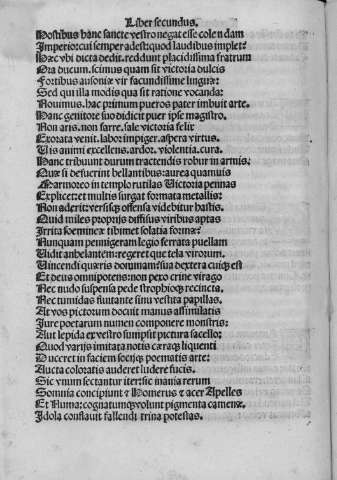 Liber secundus.
Hostibus hanc sancte vestro negat esse colendam
Imperior: cui semper adest: quod laudibus implet?
Hæc vbi dicta dedit. reddunt placidissima fratrum
Ora ducum. scimus quam sit victoria dulcis
Fortibus ausoniæ vir facundissime linguæ:
Sed qui illa modis qua sit ratione vocanda:
Nouimus. hac primum pueros pater imbuit arte.
Hanc genitore suo didicit puer ipse magistro.
Non aris. non farre. sale victoria felix
Exorata venit. labor impiger. aspera virtus.
Uis animi excellens. ardor. violentia. cura.
Hanc tribuunt durum tractendis robur in armis.
Quæ si defuerint bellantibus: aurea quamuis
Marmoreo in templo rutilas Uictoria pennas
Explicet: et multis surgat formata metallis:
Non aderit: versisq; offensa videbitur hastis.
Quid miles proprijs diffisus viribus aptas
Irrita fœmineæ tibimet solatia formæ?
Nunquam pennigeram legio ferrata puellam
Uidit anhelantem: regeret que tela virorum.
Uincendi quæris dominam? sua dextera cuiq; est
Et deus omnipotens: non pexo crine virago
Nec nudo suspensa pede strophioq; recincta.
Nec tumidas fluitante sinu vestita papillas.
At vos pictorum docuit manus assimilatis
Iure poetarum numen componere monstris:
Aut lepida ex vestro sumpsit pictura sacello:
Quod varijs imitata notis cæraq; liquenti
Duceret in faciem socijq; poematis arte:
Aucta coloratis auderet ludere fucis.
Sic vnum sectantur iter: sic inania rerum
Somnia concipiunt & Homerus & acer Apelles
Et Numa: cognatumq; volunt pigmenta camenæ.
Idola conflauit fallendi trina potestas.